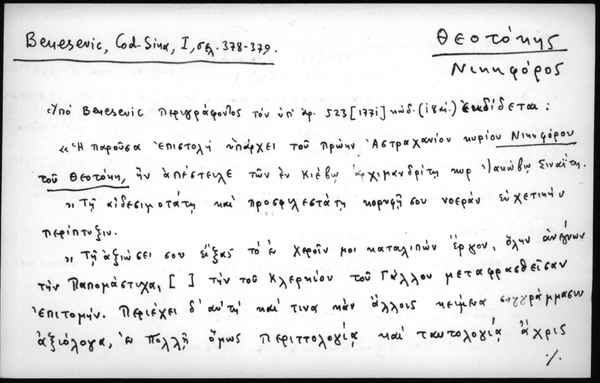 Benesevic, Cod. Sina, I, σελ. 378-379.
Θεοτόκης
Νικηφόρος
Ὑπὸ Benesevic περιγράφοντος τὸν ὑπ' ἀρ. 523 [1771] κώδ. (ιθ' αἰ.) ἐκδίδεται :
« Ἡ παροῦσα ἐπιστολὴ ὑπάρχει τοῦ πρώην Ἀστραχανίου κυρίου Νικηφόρου
τοῦ Θεοτόκη, ἣν ἀπέστειλε τῷ ἐν Κιέβῳ ἀρχιμανδρίτῃ κὺρ Ἰακώβῳ Σιναΐτῃ.
» Τῇ αἰδεσιμοτάτῃ καὶ προσφιλεστάτῃ κορυφῇ σου νοερὰν εὐχετικὴν
περίπτυξιν.
» Τῇ ἀξιώσει σου εἴξας τὸ ἐν χεροῖν μοι καταλιπὼν ἔργον, ὅλην ἀνέγνων
τὴν Παπομάστιχα, [ ] τὴν τοῦ Κλερκίου τοῦ Γάλλου μεταφρασθεῖσαν
ἐπιτομήν. Περιέχει δ' αὐτὴ καί τινα κἂν ἄλλοις κείμενα συγγράμμασιν
ἀξιόλογα, ἐν πολλῇ ὅμως περιττολογίᾳ καὶ ταυτολογίᾳ ἄχρις
./.